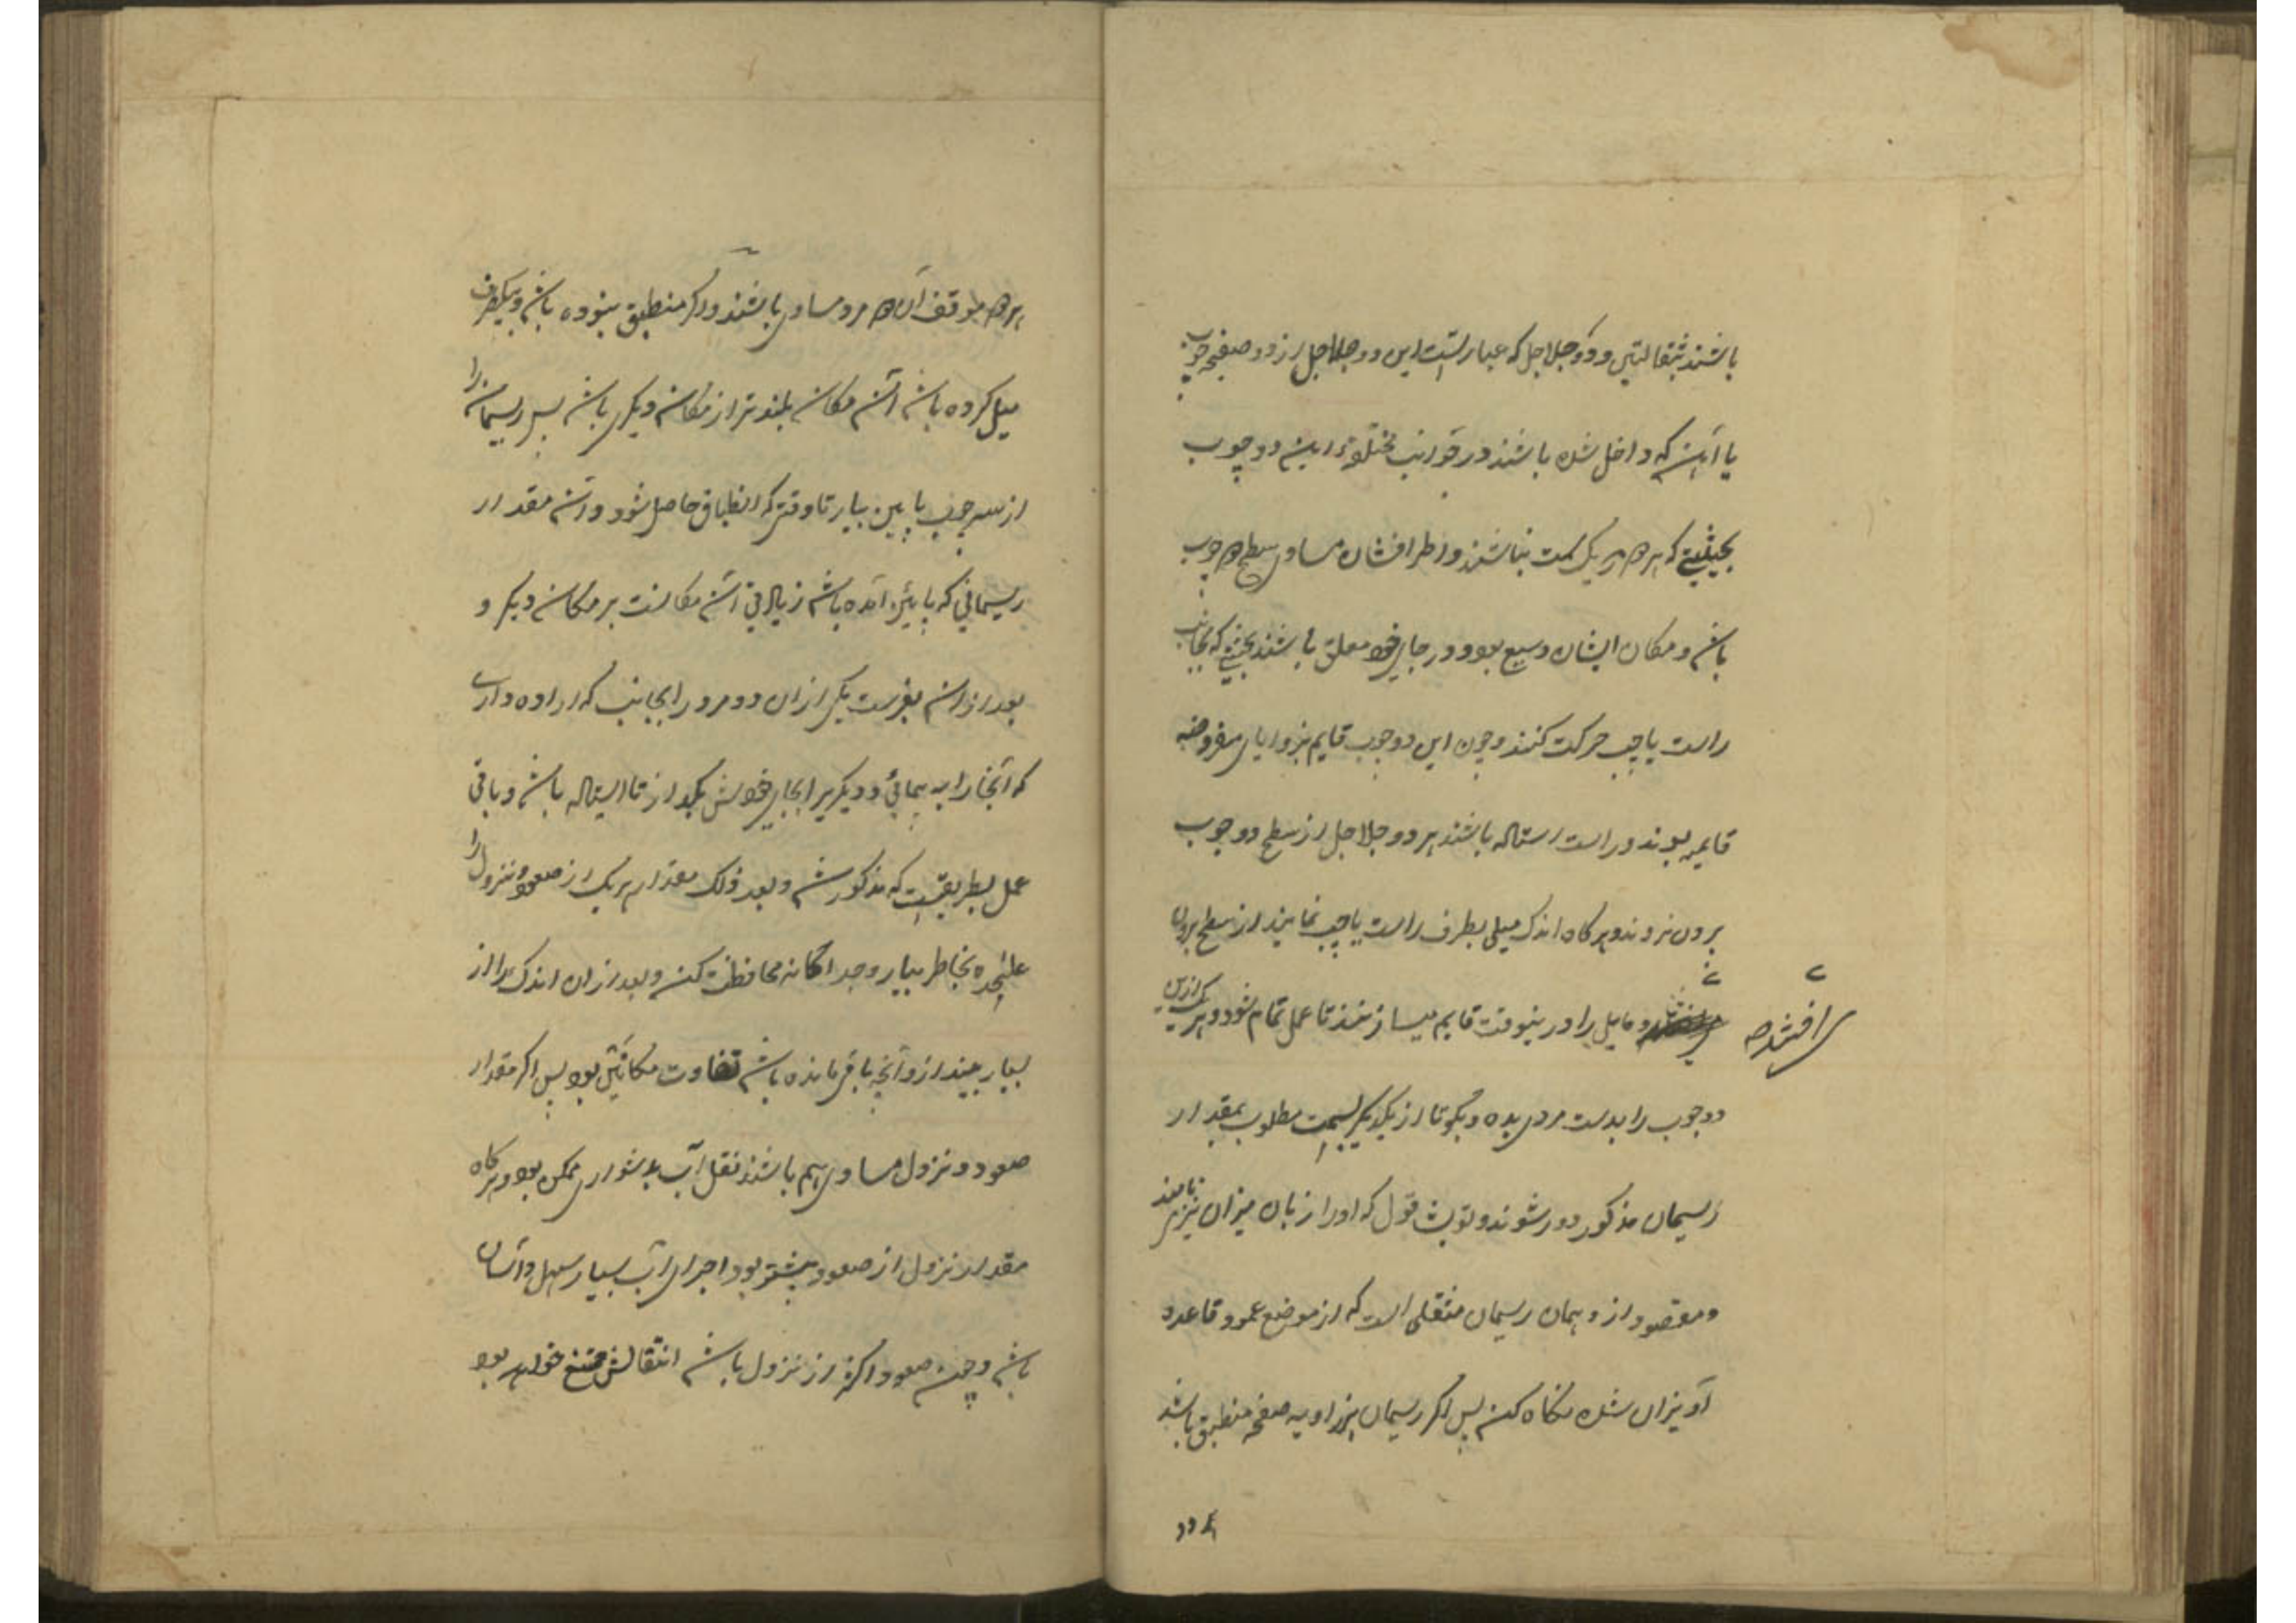 باشند بثقالتین و دو جلاجل که عبارتست این دو جلاجل از دو صفحه چوب
یا آهن که داخل شده باشند در دو چوب
بحیثیتی که هر دو بر یک سمت باشند و اطرافشان مساوی سطح هر دو چوب
باشد و مکان ایشان وسیع بود و در جای خود معلق باشند بحیثیتی که بجانب
راست یا چپ حرکت کنند و چون این دو چوب قایم بزوایای مفروضه
قایمه بوند و راست استاده باشند هر دو جلاجل از سطح دو چوب
برون نروند و هرگاه اندک میلی بطرف راست یا چپ نمایند از سطح برون
و مایل را درینوقت قایم میسازند تا عمل تمام شود و هر یک ازین
سرافشده
دو چوب را بدست مردی بده و بگو تا از یکدیگر بسمت مطلوب بمقدار
ریسمان مذکور دور شوند و تو که او را زبان میزان نیز می نامند
و مقصود از و همان ریسمان مثقلی است که از موضع عمود قاعده
آویزان شده نگاه کن پس اگر ریسمان بزاویه صفحه منطبق باشد
هر دو
هر دو موقف آن هر دو مرد مساوی باشند و اگر منطبق نبوده باشد و بیکطرف
میل کرده باشد آن مکان بلندتر از مکان دیگری باشد پس ریسمان را
از سر چوب پایین بیار تا وقتی که انطباق حاصل شود و آن مقدار
ریسمانی که پایین آمده باشد زیادتی آن مکانست بر مکان دیگر و
بعد از آن بفرست یکی از آن دو مرد را بجانب که اراده داری
که آنجا را به پیمائی و دیگریرا بجای خویش بگذار تا استاده باشد و باقی
عمل بطریقیست که مذکور شد و بعد ذلک مقدار هر یک از صعود و نزول را
علیحده بخاطر بیار و جداگانه محافظت کن و بعد از آن اندک را از
بسیار بینداز و آنچه باقی مانده باشد تفاوت مکانین بود پس اگر مقدار
صعود و نزول مساوی هم باشند نقل آب بدشواری ممکن بود و هرگاه
مقدار نزول از صعود بیشتر بود اجرای آب بسیار سهل و آسان
باشد و چون صعود اکثر از نزول باشد انتقالش ممتنع خواهد بود